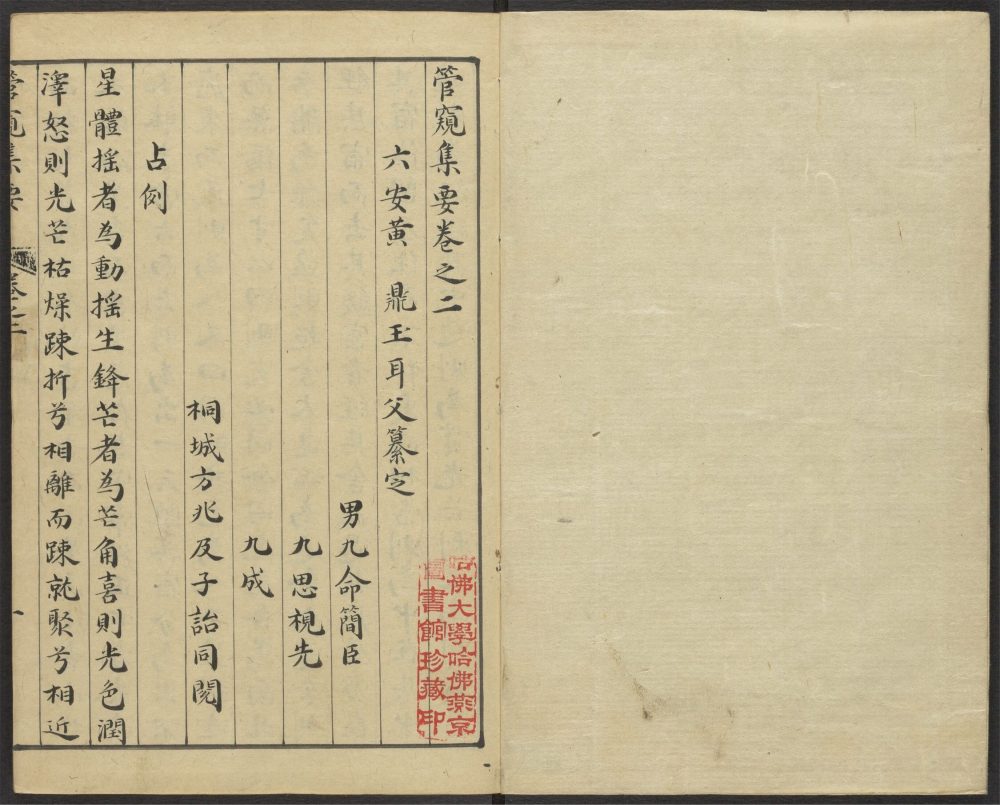 管窺集要卷之二
六安黃鼎玉耳父纂定
男九命簡臣
九思視先
九成
桐城方兆及子詒同閱
占例
星體搖者為動搖生鋒芒者為芒角喜則光色潤
澤怒則光芒枯燥踈折兮相離而踈就聚兮相近
管窺集要 卷之二 一
哈佛大學哈佛燕京
圖書館珍藏印